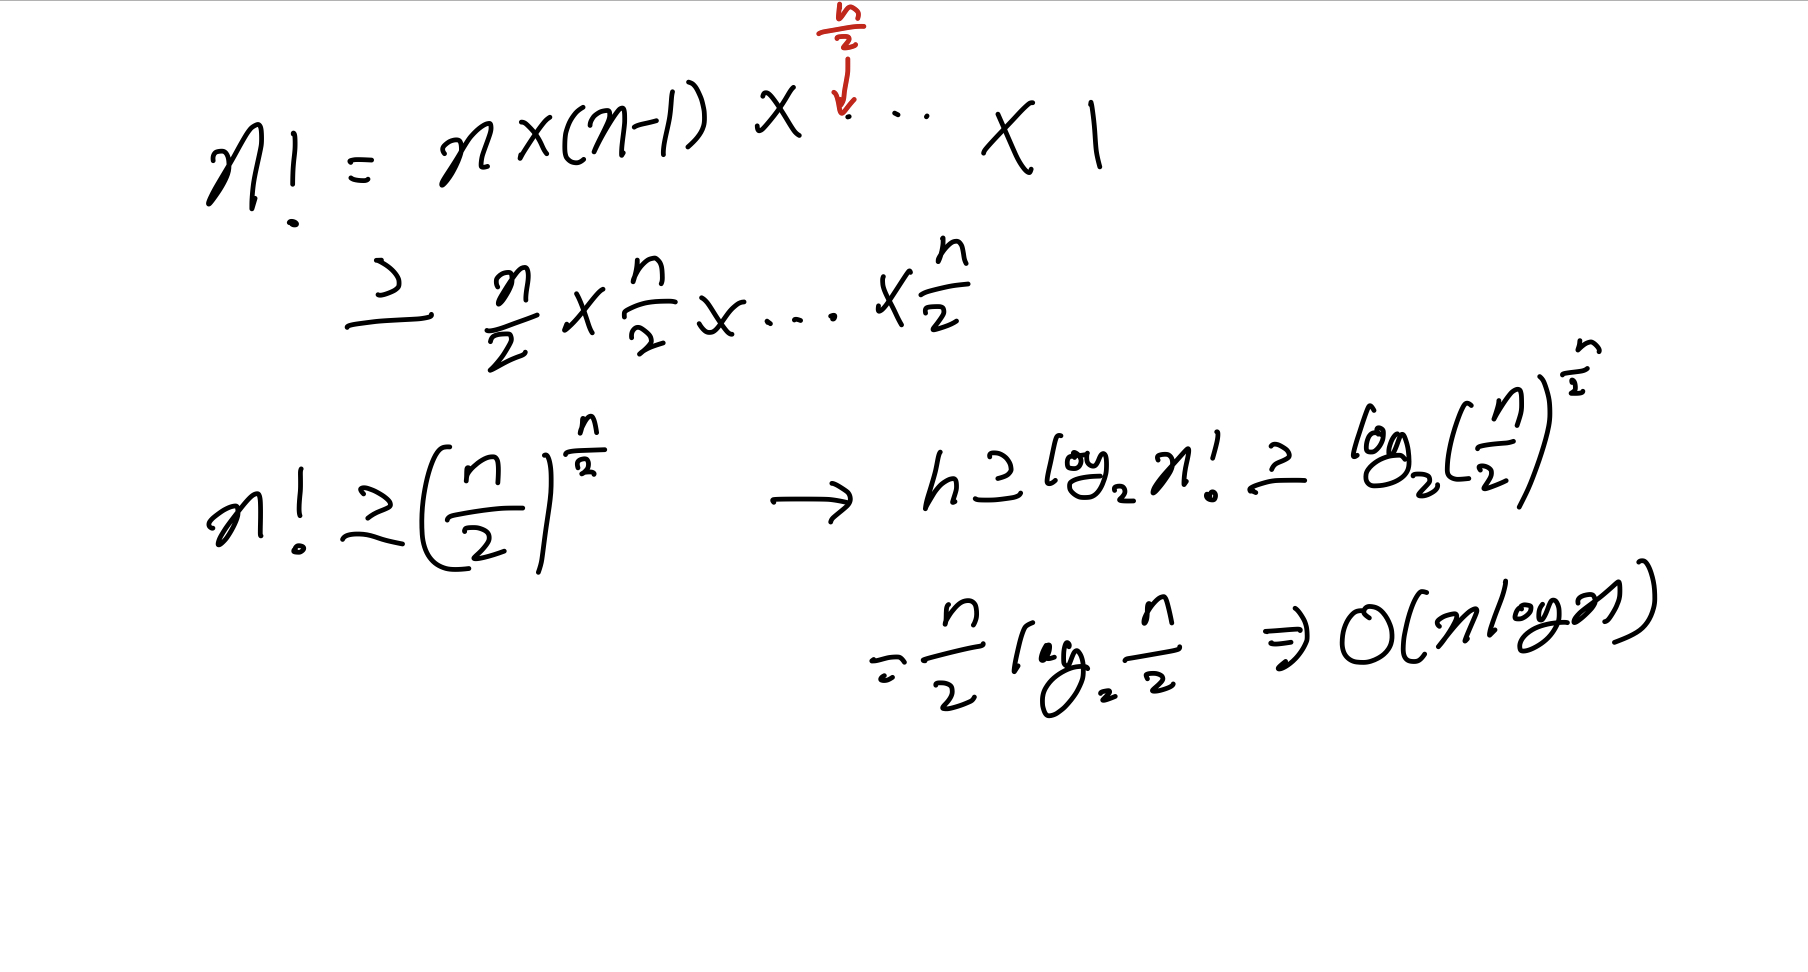 n/2
n! = n × (n-1) × ... × 1
≥ n/2 × n/2 × ... × n/2
n! ≥ (n/2)^(n/2) → h ≥ log₂ n! ≥ log₂ (n/2)^(n/2)
= n/2 log₂ n/2 ⇒ O(n log n)